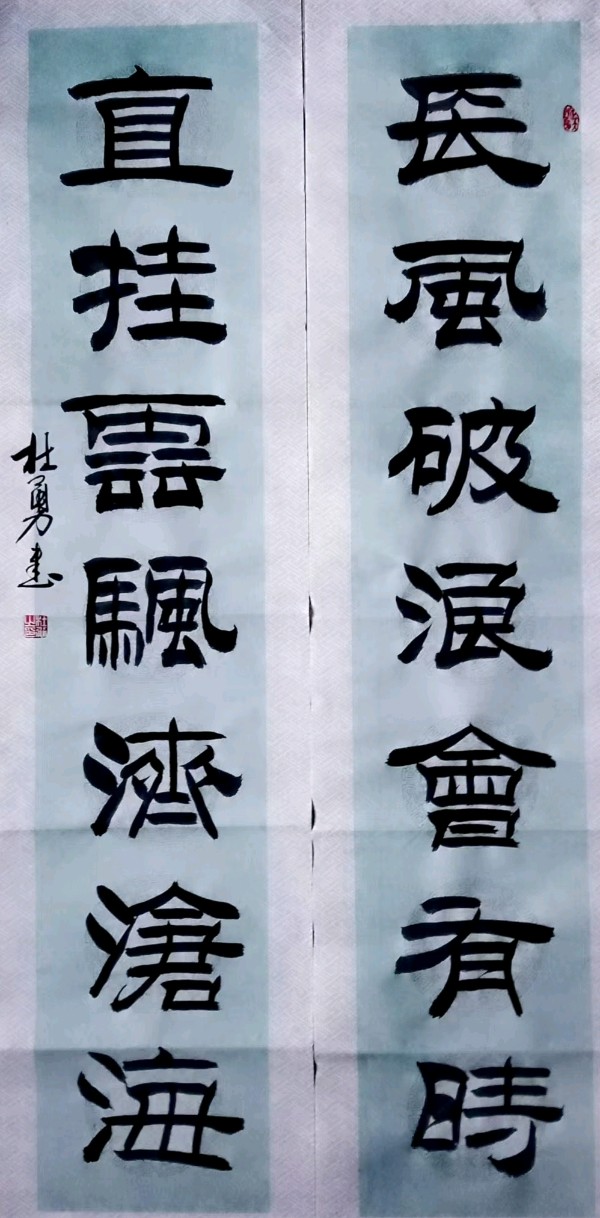 長風破浪會有時
直挂雲颿濟滄海
杜勇書